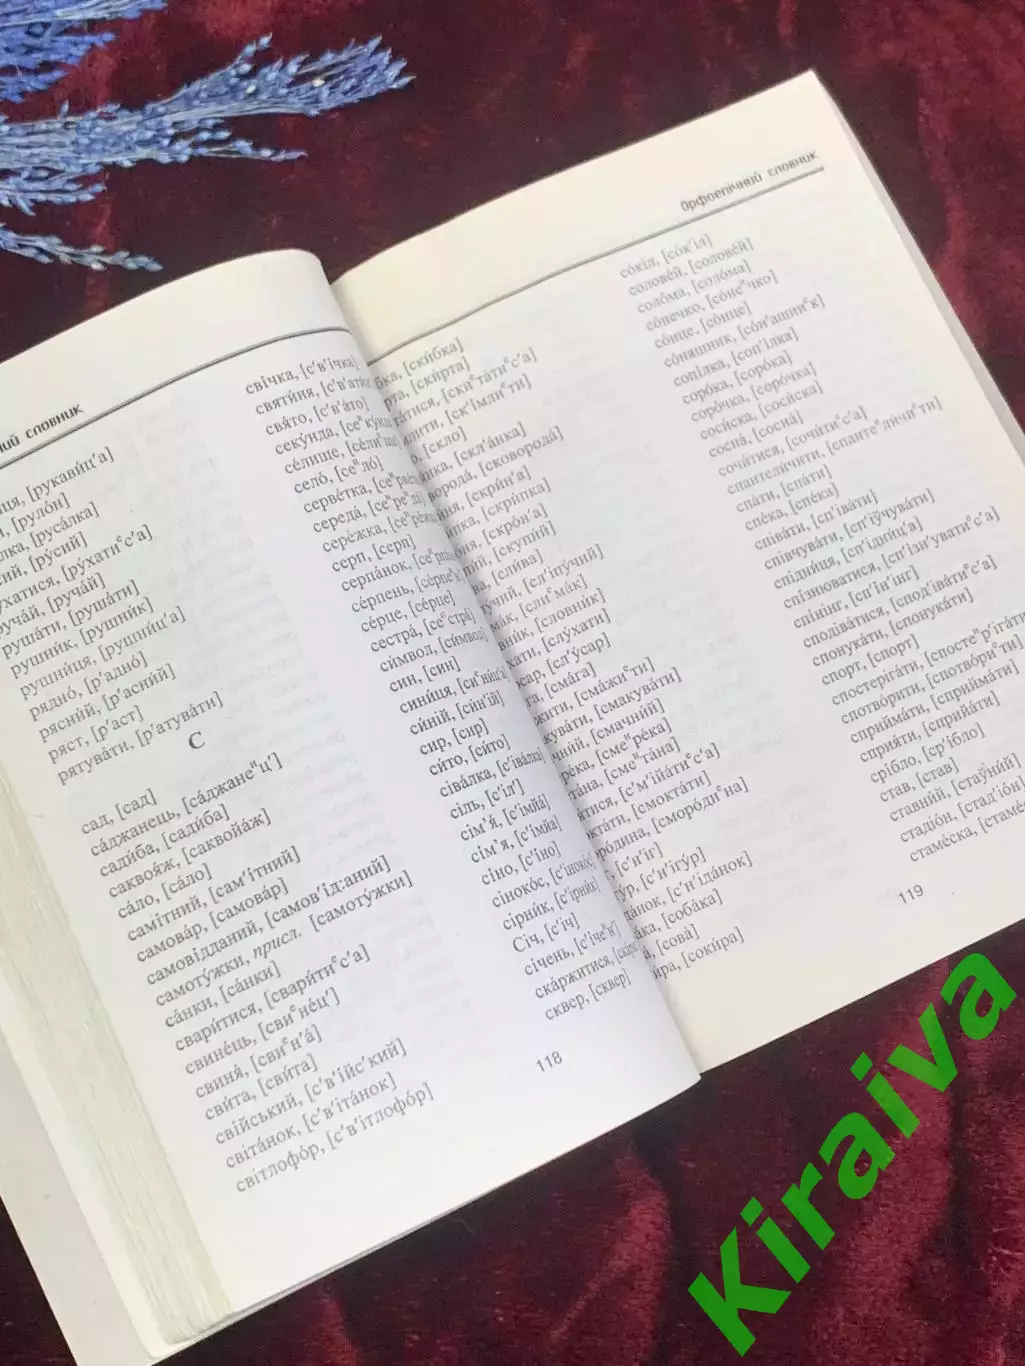 словник
[рукави́ц'а]
[руло́н]
[руса́лка]
[ру́сий]
[ру́хатиᵉс'а]
руча́й, [руча́й]
руша́ти, [руша́ти]
рушни́к, [рушни́к]
рушни́ця, [рушни́ц'а]
рядно́, [р'адно́]
рясни́й, [р'асни́й]
ряст, [р'аст]
рятува́ти, [р'атува́ти]
С
сад, [сад]
са́джанець, [са́джанеᶦц']
сади́ба, [сади́ба]
саквоя́ж, [саквойа́ж]
са́ло, [са́ло]
самі́тний, [сам'і́тний]
самова́р, [самова́р]
самові́дданий, [самов'і́д:аний]
самоту́жки, присл. [самоту́жки]
са́нки, [са́нки]
свари́тися, [свари́тиᵉс'а]
свине́ць, [свиᵉне́ц']
свиня́, [свиᵉн'а́]
сви́та, [сви́та]
сві́йський, [с'в'і́йс'кий]
світа́нок, [с'в'іта́нок]
світлофо́р, [с'в'ітлофо́р]
сві́чка, [с'в'і́чка]
святи́ня,
свя́то, [с'в'а́то]
секу́нда,
се́лище,
село́, [сеᶦло́]
серве́тка,
середа́,
сере́жка,
серп, [серп]
серпа́нок,
се́рпень,
се́рце, [се́рце]
сестра́, [сеᶦстра́]
си́мвол, [си́мвол]
син, [син]
сини́ця,
си́ній, [си́н'ій]
сир, [сир]
си́то, [си́то]
сіва́лка, [с'іва́лка]
сіль, [с'іл']
сім'я́, [с'імйа́]
сі́м'я, [с'і́мйа]
сі́но, [с'і́но]
сіноко́с, [с'іноко́с]
сірни́к, [с'ірни́к]
Січ, [с'іч]
сі́чень,
ска́ржитися,
сквер, [сквер]
118
Орфоепічний словник
[ски́бка]
[ски́рта]
[скиᵉта́тиᵉс'а]
[ск'і́млиᵉти]
[скло]
[скл'а́нка]
[сковорода́]
[скри́н'а]
[скри́пка]
[скро́н'а]
[скупи́й]
[сли́ва]
[сл'іпу́чий]
[слиᵉма́к]
[словни́к]
[слу́хати]
[сл'у́сар]
[сма́га]
[сма́жиᵉти]
[смакува́ти]
[смачни́й]
[смеᶦре́ка]
[смеᶦта́на]
[с'м'ійа́тиᵉс'а]
[смокта́ти]
[сморо́диᵉна]
[с'н'іг]
[с'н'ігу́р]
[с'н'іда́нок]
[соба́ка]
[сова́]
[соки́ра]
со́кіл, [со́к'іл]
солове́й, [солове́й]
соло́ма, [соло́ма]
со́нечко, [со́неᶦчко]
со́нце, [со́нце]
со́няшник, [со́н'ашниᵉк]
сопі́лка, [соп'і́лка]
соро́ка, [соро́ка]
соро́чка, [соро́чка]
соси́ска, [соси́ска]
сосна́, [сосна́]
сочи́тися, [сочи́тиᵉс'а]
спантели́чити, [спантеᶦли́чиᵉти]
спа́ти, [спа́ти]
спе́ка, [спе́ка]
співа́ти, [сп'іва́ти]
співчува́ти, [сп'іўчува́ти]
спідни́ця, [сп'ідни́ц'а]
спізнюватися,
спі́нінг, [сп'і́н'інг]
сподіва́тися, [спод'іва́тиᵉс'а]
спонука́ти, [спонука́ти]
спорт, [спорт]
спостеріга́ти,
спотво́рити, [спотво́риᵉти]
сприйма́ти, [сприйма́ти]
сприя́ти, [сприйа́ти]
срі́бло, [ср'і́бло]
став, [став]
ставни́й, [стаўни́й]
стадіо́н, [стад'іо́н]
стаме́ска,
119
Kiraiva